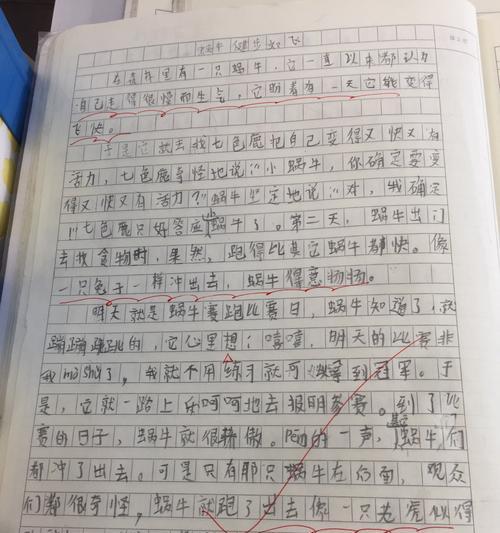 蜗牛健步如飞
在森林里有一只蜗牛,它一直以来都认为
自己走得很慢而生气,它盼着有一天它能变得
飞快。
于是它就去找七色鹿把自己变得又快又有
活力,七色鹿奇怪地说:“小蜗牛,你确定要变
得又快又有活力?”蜗牛坚定地说:“对,我确定
!”七色鹿只好答应小蜗牛了。第二天,蜗牛出门
去找食物时,果然,跑得比其它蜗牛都快。像
一只兔子一样冲出去,蜗牛得意扬扬。
明天就是蜗牛赛跑比赛日,蜗牛知道了,就
蹦蹦跳跳的,它心里想:嘻嘻,明天的比赛非
我mò shǔ了,我就不用练习就可以拿到冠军。于
是,它就一路上乐呵呵地去报明参赛。到了比
赛的日子,蜗牛就很骄傲。Pēng的一声,蜗牛们
都冲了出去。可是只有那只蜗牛在后面,观众
们都很奇怪,蜗牛就跑了出去像一只老虎似得